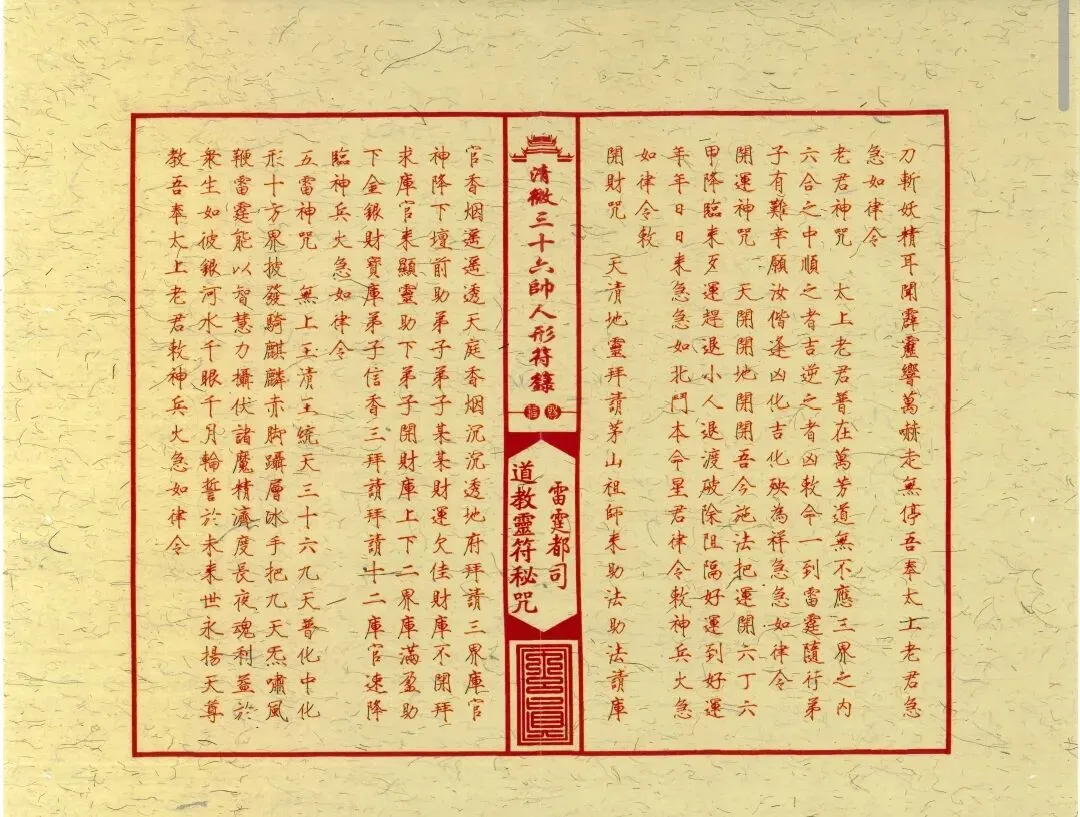 刀斬妖精耳聞霹靂響萬嚇走無停吾奉太上老君急
急如律令
老君神咒　太上老君普在萬芳道無不應三界之內
六合之中順之者吉逆之者凶敕令一到雷霆隨行弟
子有難幸願汝偕逢凶化吉化殃為祥急急如律令
開運神咒　天開開地開開吾今施法把運開六丁六
甲降臨來歹運趕退小人退渡破除阻隔好運到好運
年年日日來急急如北鬥本命星君律令敕神兵火急
如律令敕
開財咒　天清地靈拜請茅山祖師來助法助法請庫
清微三十六帥人形符籙
雷霆都司
道教靈符秘咒
官香烟遥遥透天庭香烟沉沉透地府拜請三界庫官
神降下壇前助弟子弟子某某財運欠佳財庫不開拜
求庫官來顯靈助下弟子開財庫上下二界庫滿盈助
下金銀財寶庫弟子信香三拜請拜請十二庫官速降
臨神兵火急如律令
五雷神咒　無上玉清王統天三十六九天普化中化
形十方界披發騎麒麟赤脚躡層冰手把九天炁嘯風
鞭雷霆能以智慧力攝伏諸魔精濟度長夜魂利益於
衆生如彼銀河水千眼千月輪誓於未來世永揚天尊
教吾奉太上老君敕神兵火急如律令